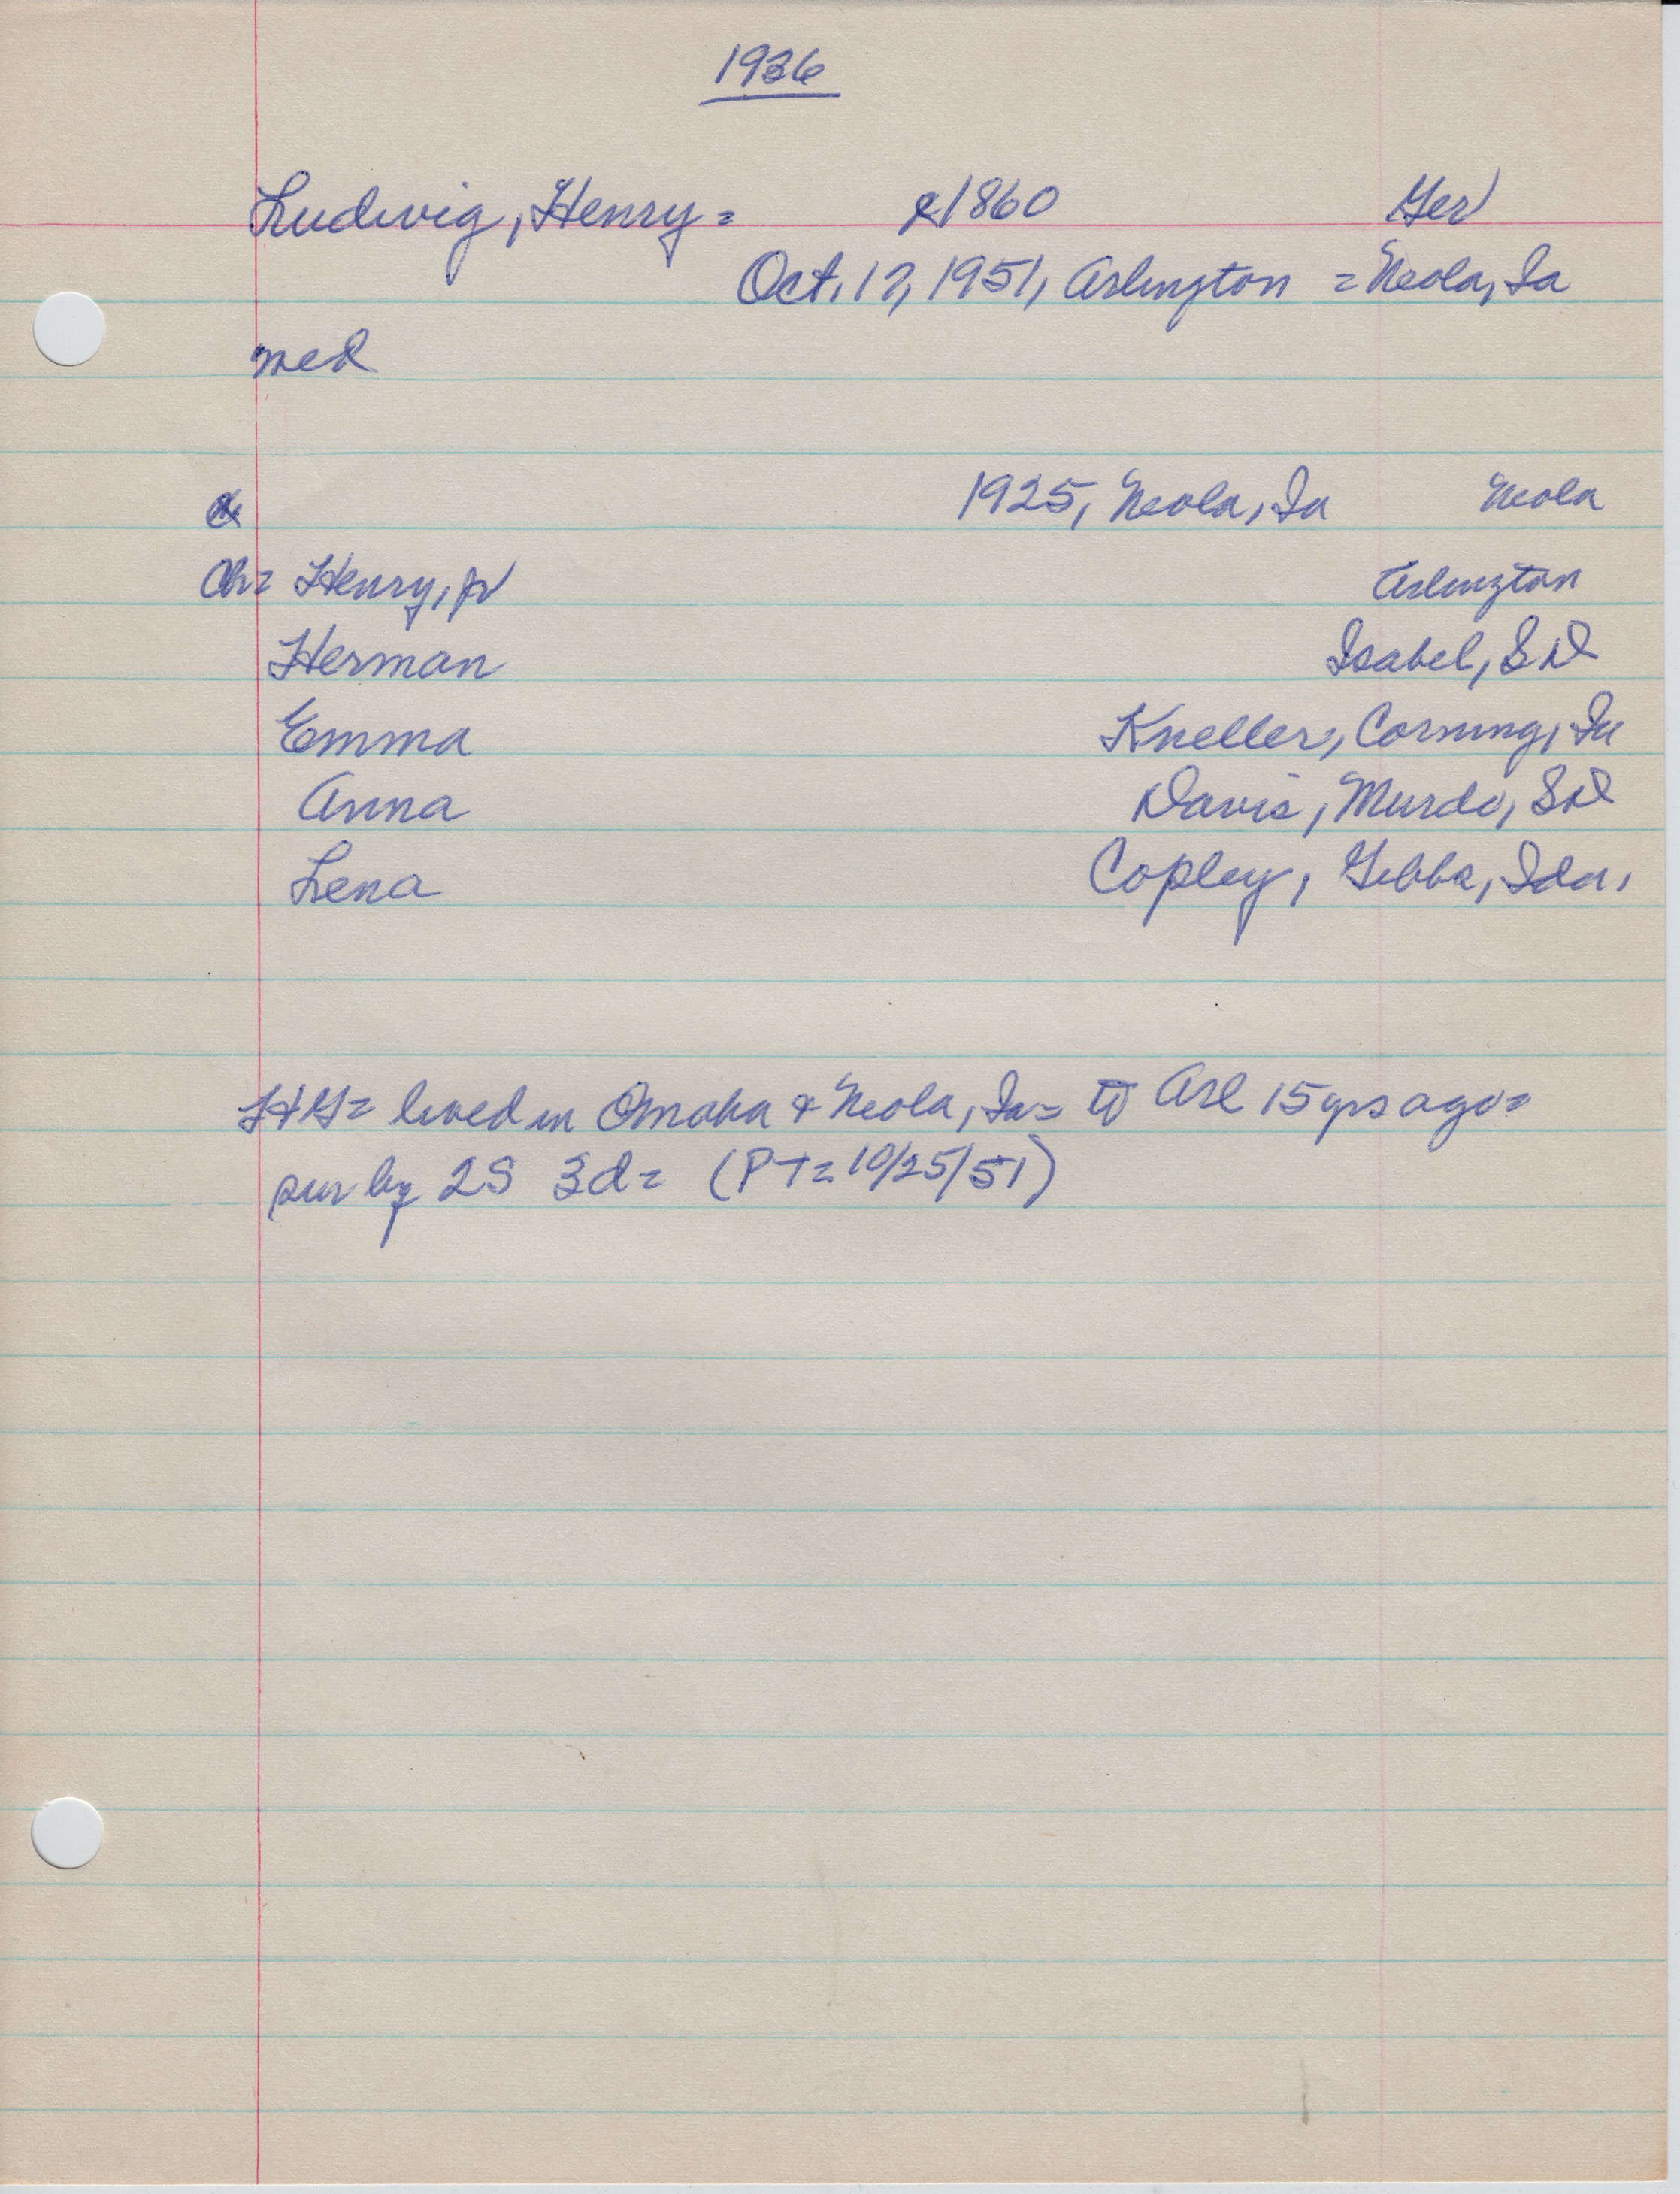 1936
Ludwig, Henry = 1860 Ger
Oct. 12, 1951, Arlington = Neola, Ia
med
1925, Neola, Ia Neola
Ch = Henry, jr Arlington
Herman Isabel, SD
Emma Kneller, Corning, Ia
Anna Davis, Murdo, SD
Lena Copley, Gibbs, Ida.
= lived in Omaha & Neola, Ia = to Arl 15 yrs ago =
sur by 2S 3d = (PT = 10/25/51)